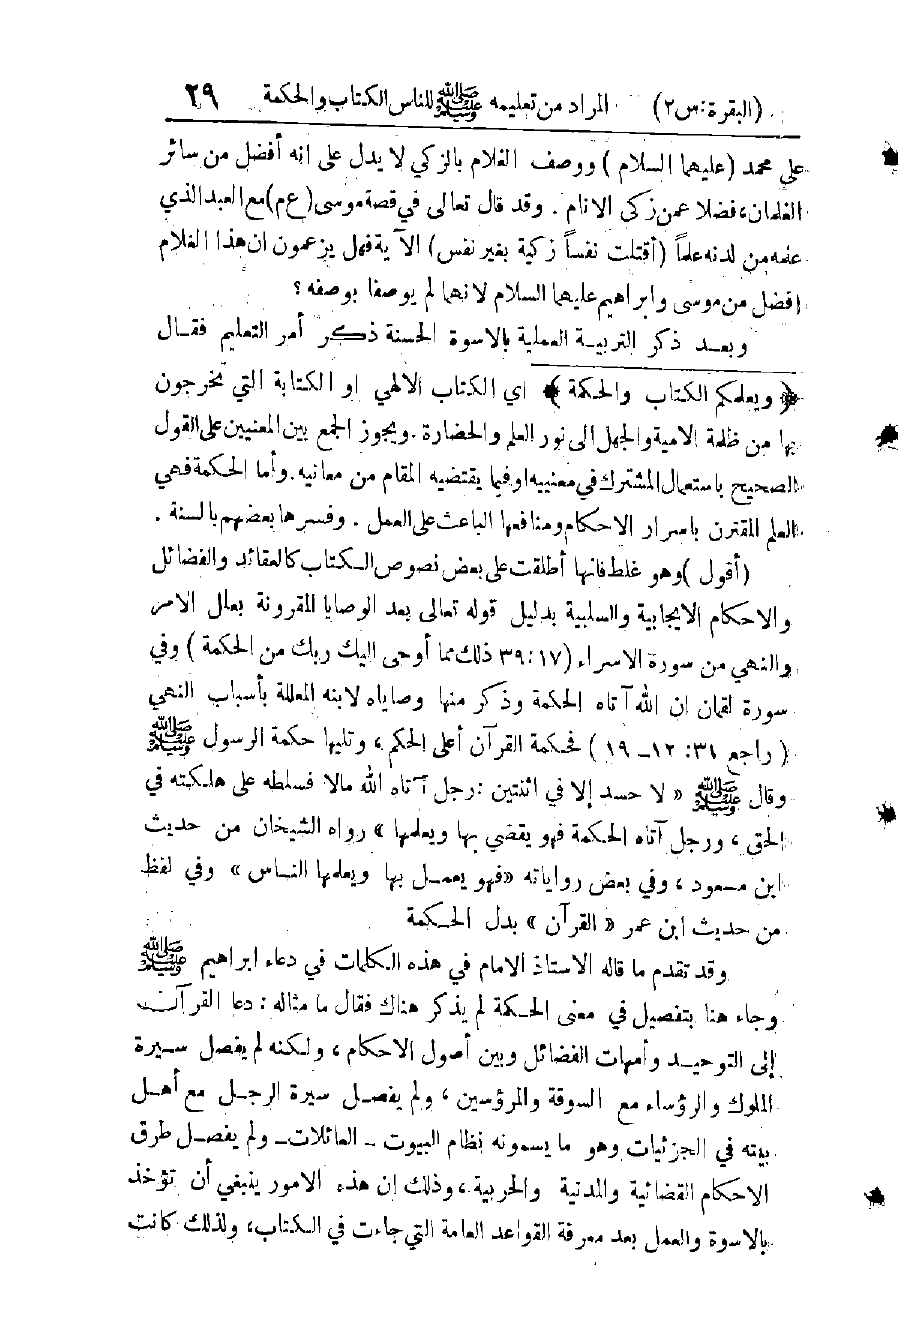 (البقرة: س ٢) المراد من تعليمه ﷺ للناس الكتاب والحكمة ٢٩
على محمد (عليهما السلام) ووصف الغلام بالزكي لا يدل على انه أفضل من سائر
الغلمان، فضلا عمن زكى الانام. وقد قال تعالى في قصة موسى (ع م) مع العبد الذي
علمه من لدنه علماً (أقتلت نفساً زكية بغير نفس) الآية فهل يزعمون ان هذا الغلام
افضل من موسى وابراهيم عليهما السلام لانهما لم يوصفا بوصفه؟
وبعد ذكر التربية العملية بالاسوة الحسنة ذكر أمر التعليم فقال
﴿ ويعلمكم الكتاب والحكمة ﴾ اي الكتاب الالهي او الكتابة التي تخرجون
بها من ظلمة الامية والجهل الى نور العلم والحضارة. ويجوز الجمع بين المعنيين على القول
الصحيح باستعمال المشترك في معنييه اوفيما يقتضيه المقام من معانيه. وأما الحكمة فهي
العلم المقترن باسرار الاحكام ومنافعها الباعث على العمل. وفسرها بعضهم بالسنة.
(أقول) وهو غلط فانها أطلقت على بعض نصوص الكتاب كالعقائد والفضائل
والاحكام الايجابية والسلبية بدليل قوله تعالى بعد الوصايا المقرونة بعلل الامر
والنهي من سورة الاسراء (١٧:٣٩ ذلك مما أوحى اليك ربك من الحكمة) وفي
سورة لقمان ان الله آتاه الحكمة وذكر منها وصاياه لابنه المعللة بأسباب النهي
(راجع ٣١: ١٢ــ ١٩) فحكمة القرآن أعلى الحكم، وتليها حكمة الرسول ﷺ
وقال ﷺ « لا حسد إلا في اثنتين: رجل آتاه الله مالا فسلطه على هلكته في
الحق، ورجل آتاه الحكمة فهو يقضي بها ويعلمها » رواه الشيخان من حديث
ابن مسعود، وفي بعض رواياته «فهو يعمل بها ويعلمها الناس» وفي لفظ
من حديث ابن عمر « القرآن » بدل الحكمة
وقد تقدم ما قاله الاستاذ الامام في هذه الكلمات في دعاء ابراهيم ﷺ
وجاء هنا بتفصيل في معنى الحكمة لم يذكر هناك فقال ما مثاله: دعا القرآن
إلى التوحيد وأمهات الفضائل وبين أصول الاحكام، ولكنه لم يفصل سيرة
الملوك والرؤساء مع السوقة والمرؤسين، ولم يفصل سيرة الرجل مع أهل
بيته في الجزئيات وهو ما يسمونه نظام البيوت ــ العائلات ــ ولم يفصل طرق
الاحكام القضائية والمدنية والحربية، وذلك ان هذه الامور ينبغي أن تؤخذ
بالاسوة والعمل بعد معرفة القواعد العامة التي جاءت في الكتاب، ولذلك كانت